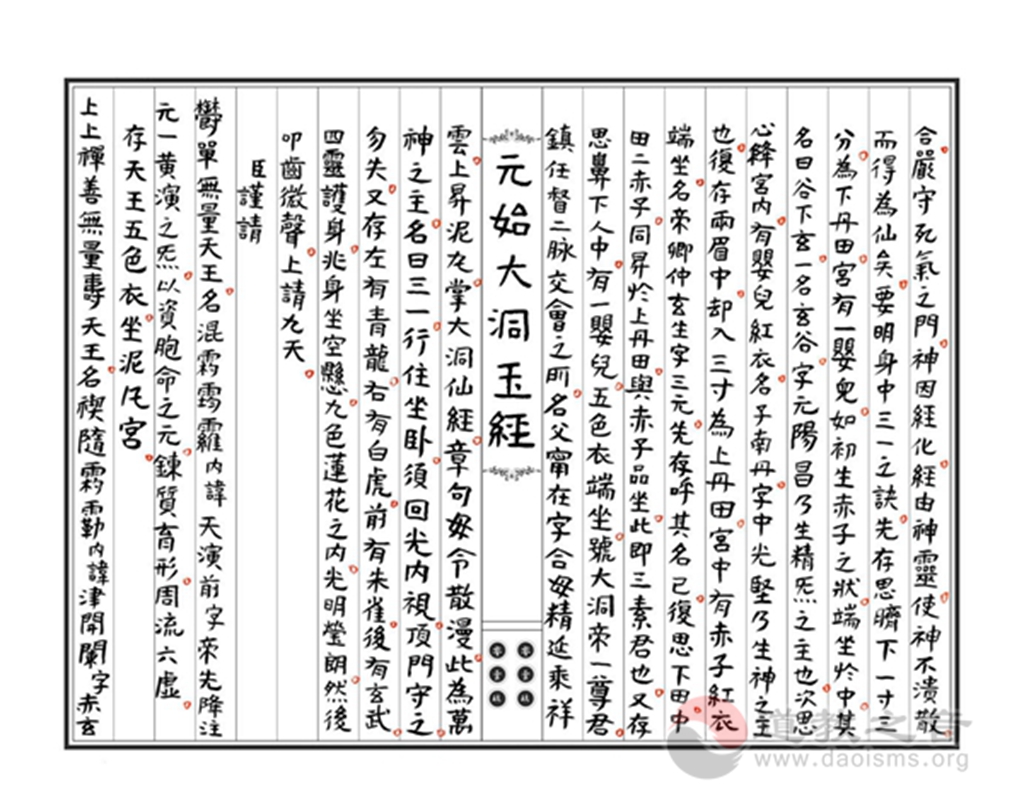 合嚴守死氣之門神因經化經由神靈使神不潰散
而得為仙矣要明身中三一之訣先存思臍下一寸三
分為下丹田宮有一嬰兒如初生赤子之狀端坐於中其
名曰谷下玄一名玄谷字元陽昌乃生精炁之主也次思
心絳宮內有嬰兒紅衣名子南丹字中光堅乃生神之主
也復存兩眉中却入三寸為上丹田宮中有赤子紅衣
端坐名帝卿仲玄生字三元先存呼其名已復思下田中
田二赤子同昇於上丹田與赤子品坐此即三素君也又存
思鼻下人中有一嬰兒五色衣端坐號大洞帝一尊君
鎮任督二脉交會之所名父甯在字合母精延乘祥
元始大洞玉經
雲上昇泥丸掌大洞仙經章句毋令散漫此為萬
神之主名曰三一行住坐卧須回光內視頂門守之
勿失又存左有青龍右有白虎前有朱雀後有玄武
四靈護身兆身坐空懸九色蓮花之內光明瑩朗然後
叩齒微聲上請九天
臣謹請
鬱單無量天王名混霧內諱天演前字帝先降注
元一黃演之炁以資胞命之元鍊質育形周流六虛
存天王五色衣坐泥凡宮
上上禪善無量壽天王名禊隨勒內諱津開闌字赤玄
道教之音
www.daoisms.org